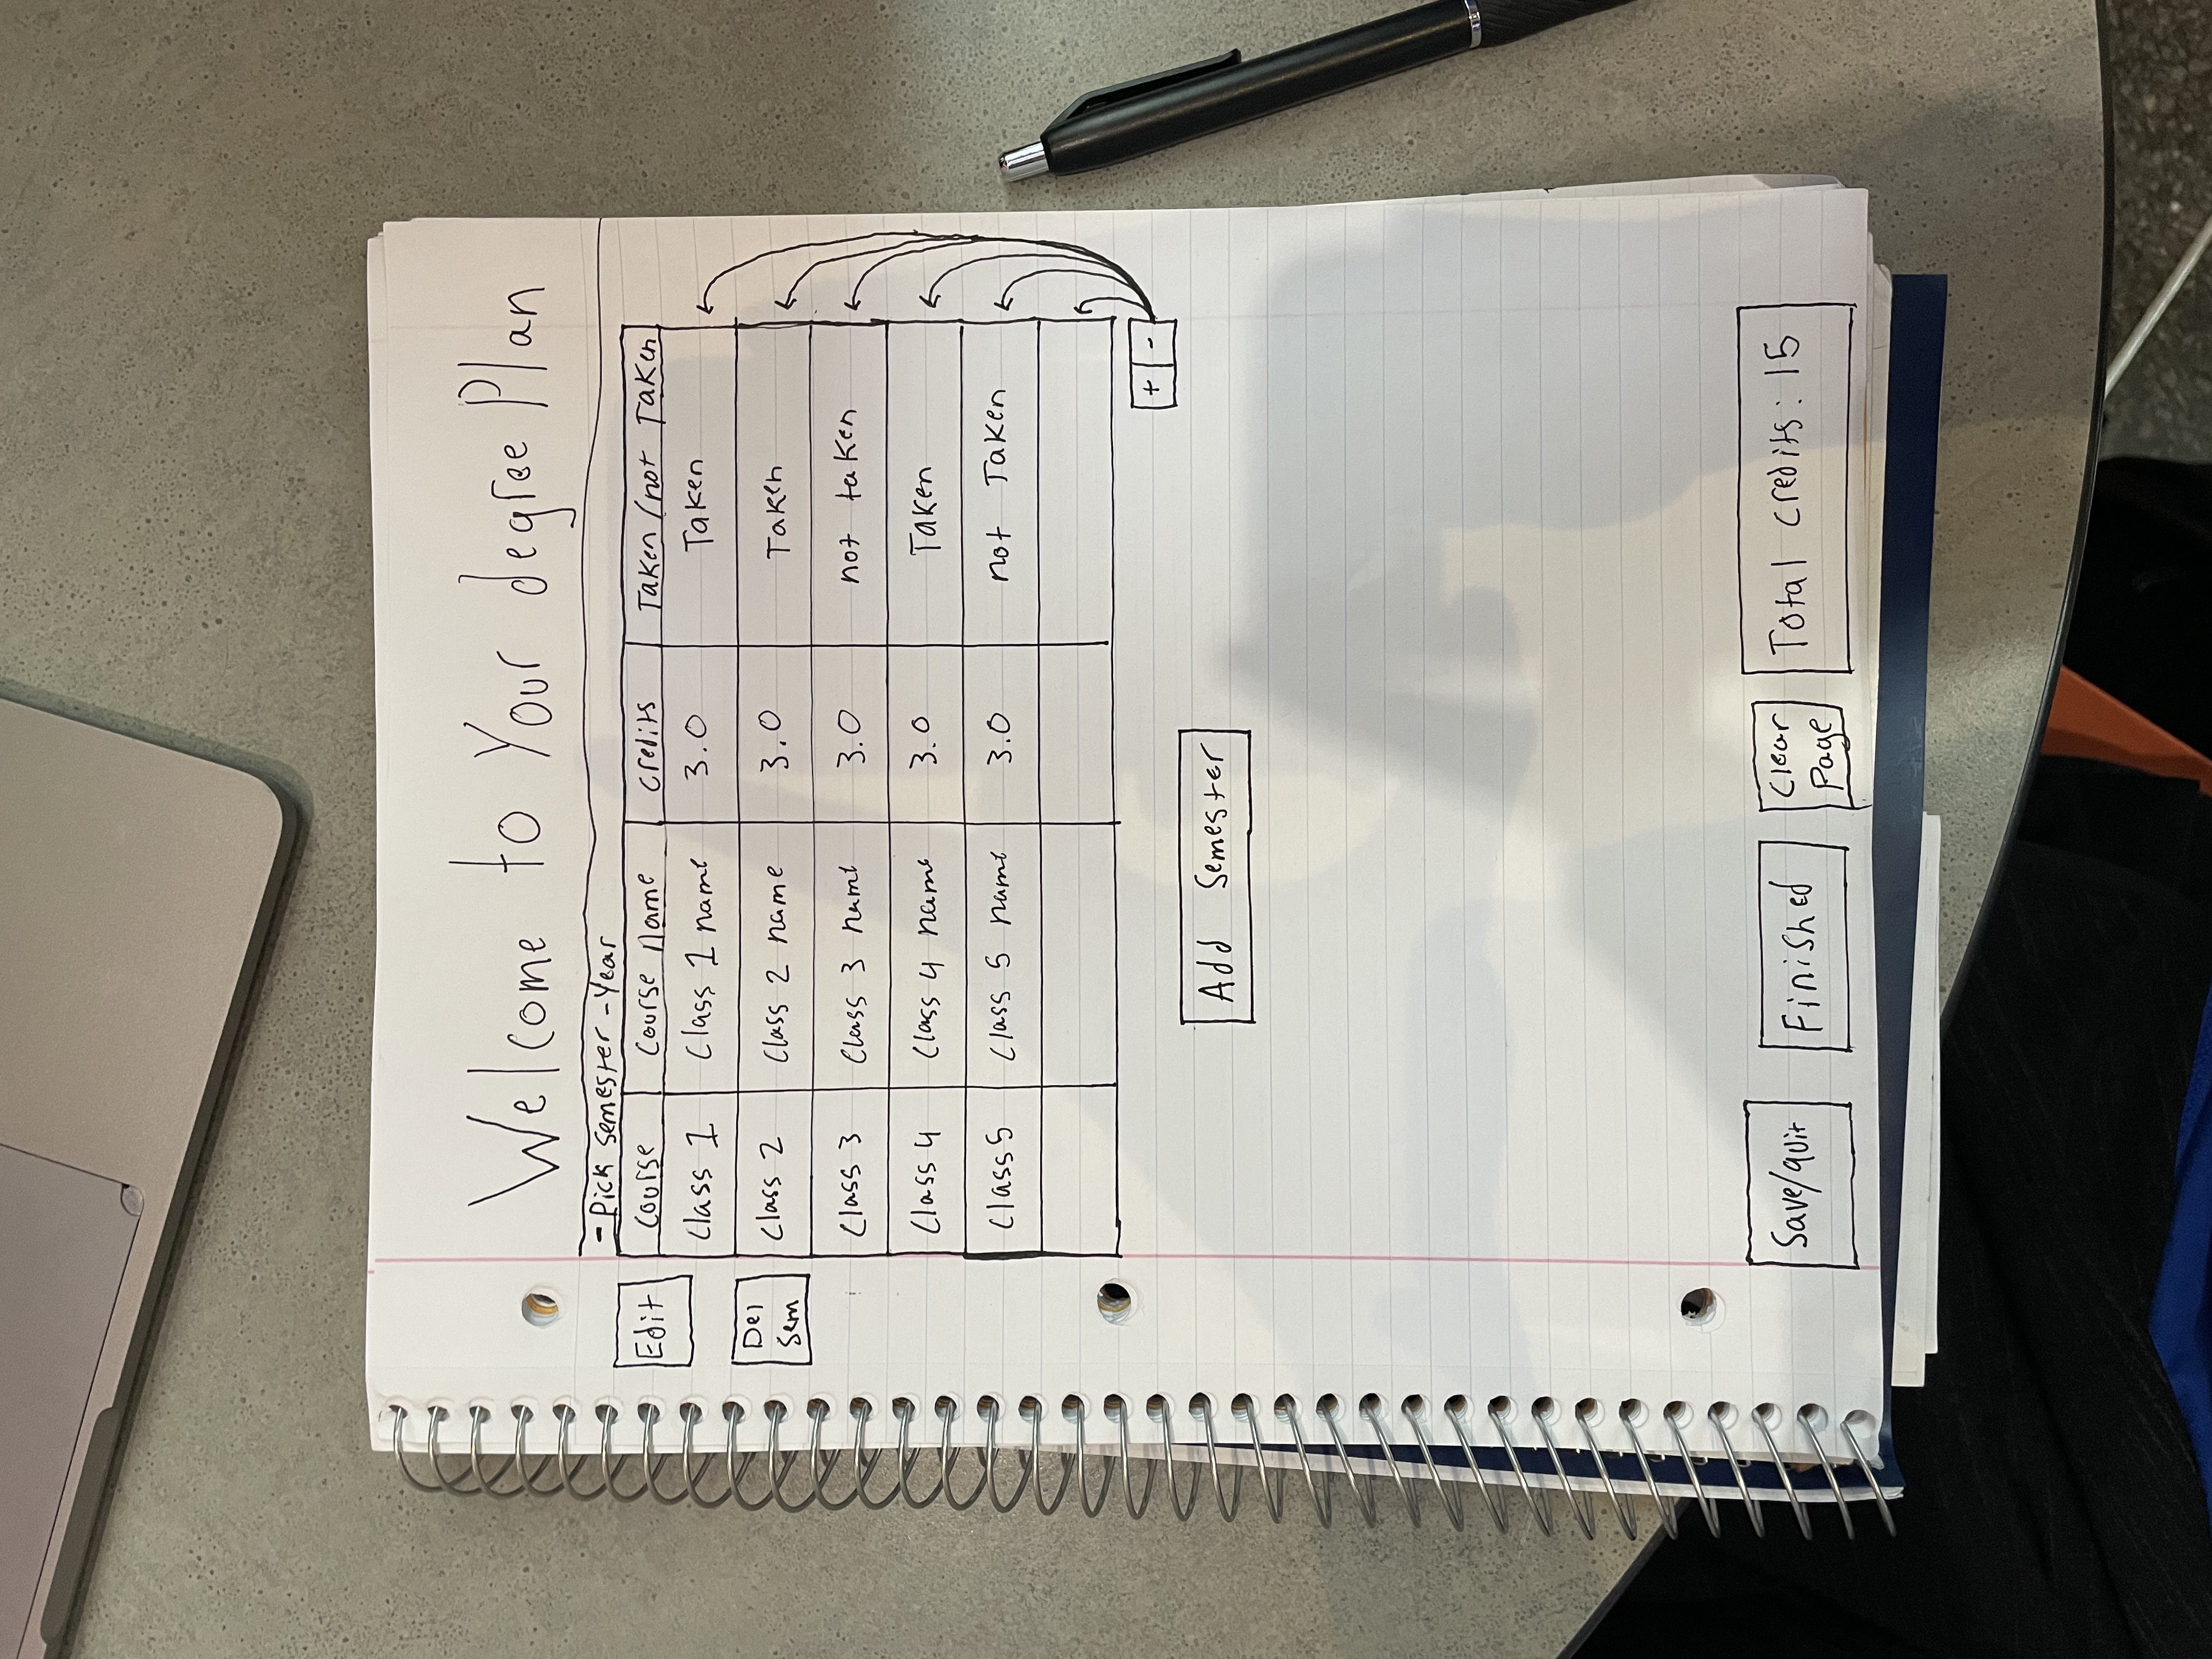 Welcome to Your degree Plan
- Pick semester - Year
Edit
Course Course name credits Taken/not Taken
Class 1 Class 1 name 3.0 Taken
Del
Sem
Class 2 Class 2 name 3.0 Taken
Class 3 Class 3 name 3.0 not taken
Class 4 Class 4 name 3.0 Taken
Class 5 Class 5 name 3.0 not Taken
+ -
Add Semester
Save/quit
Finished
Clear
Page
Total credits: 15